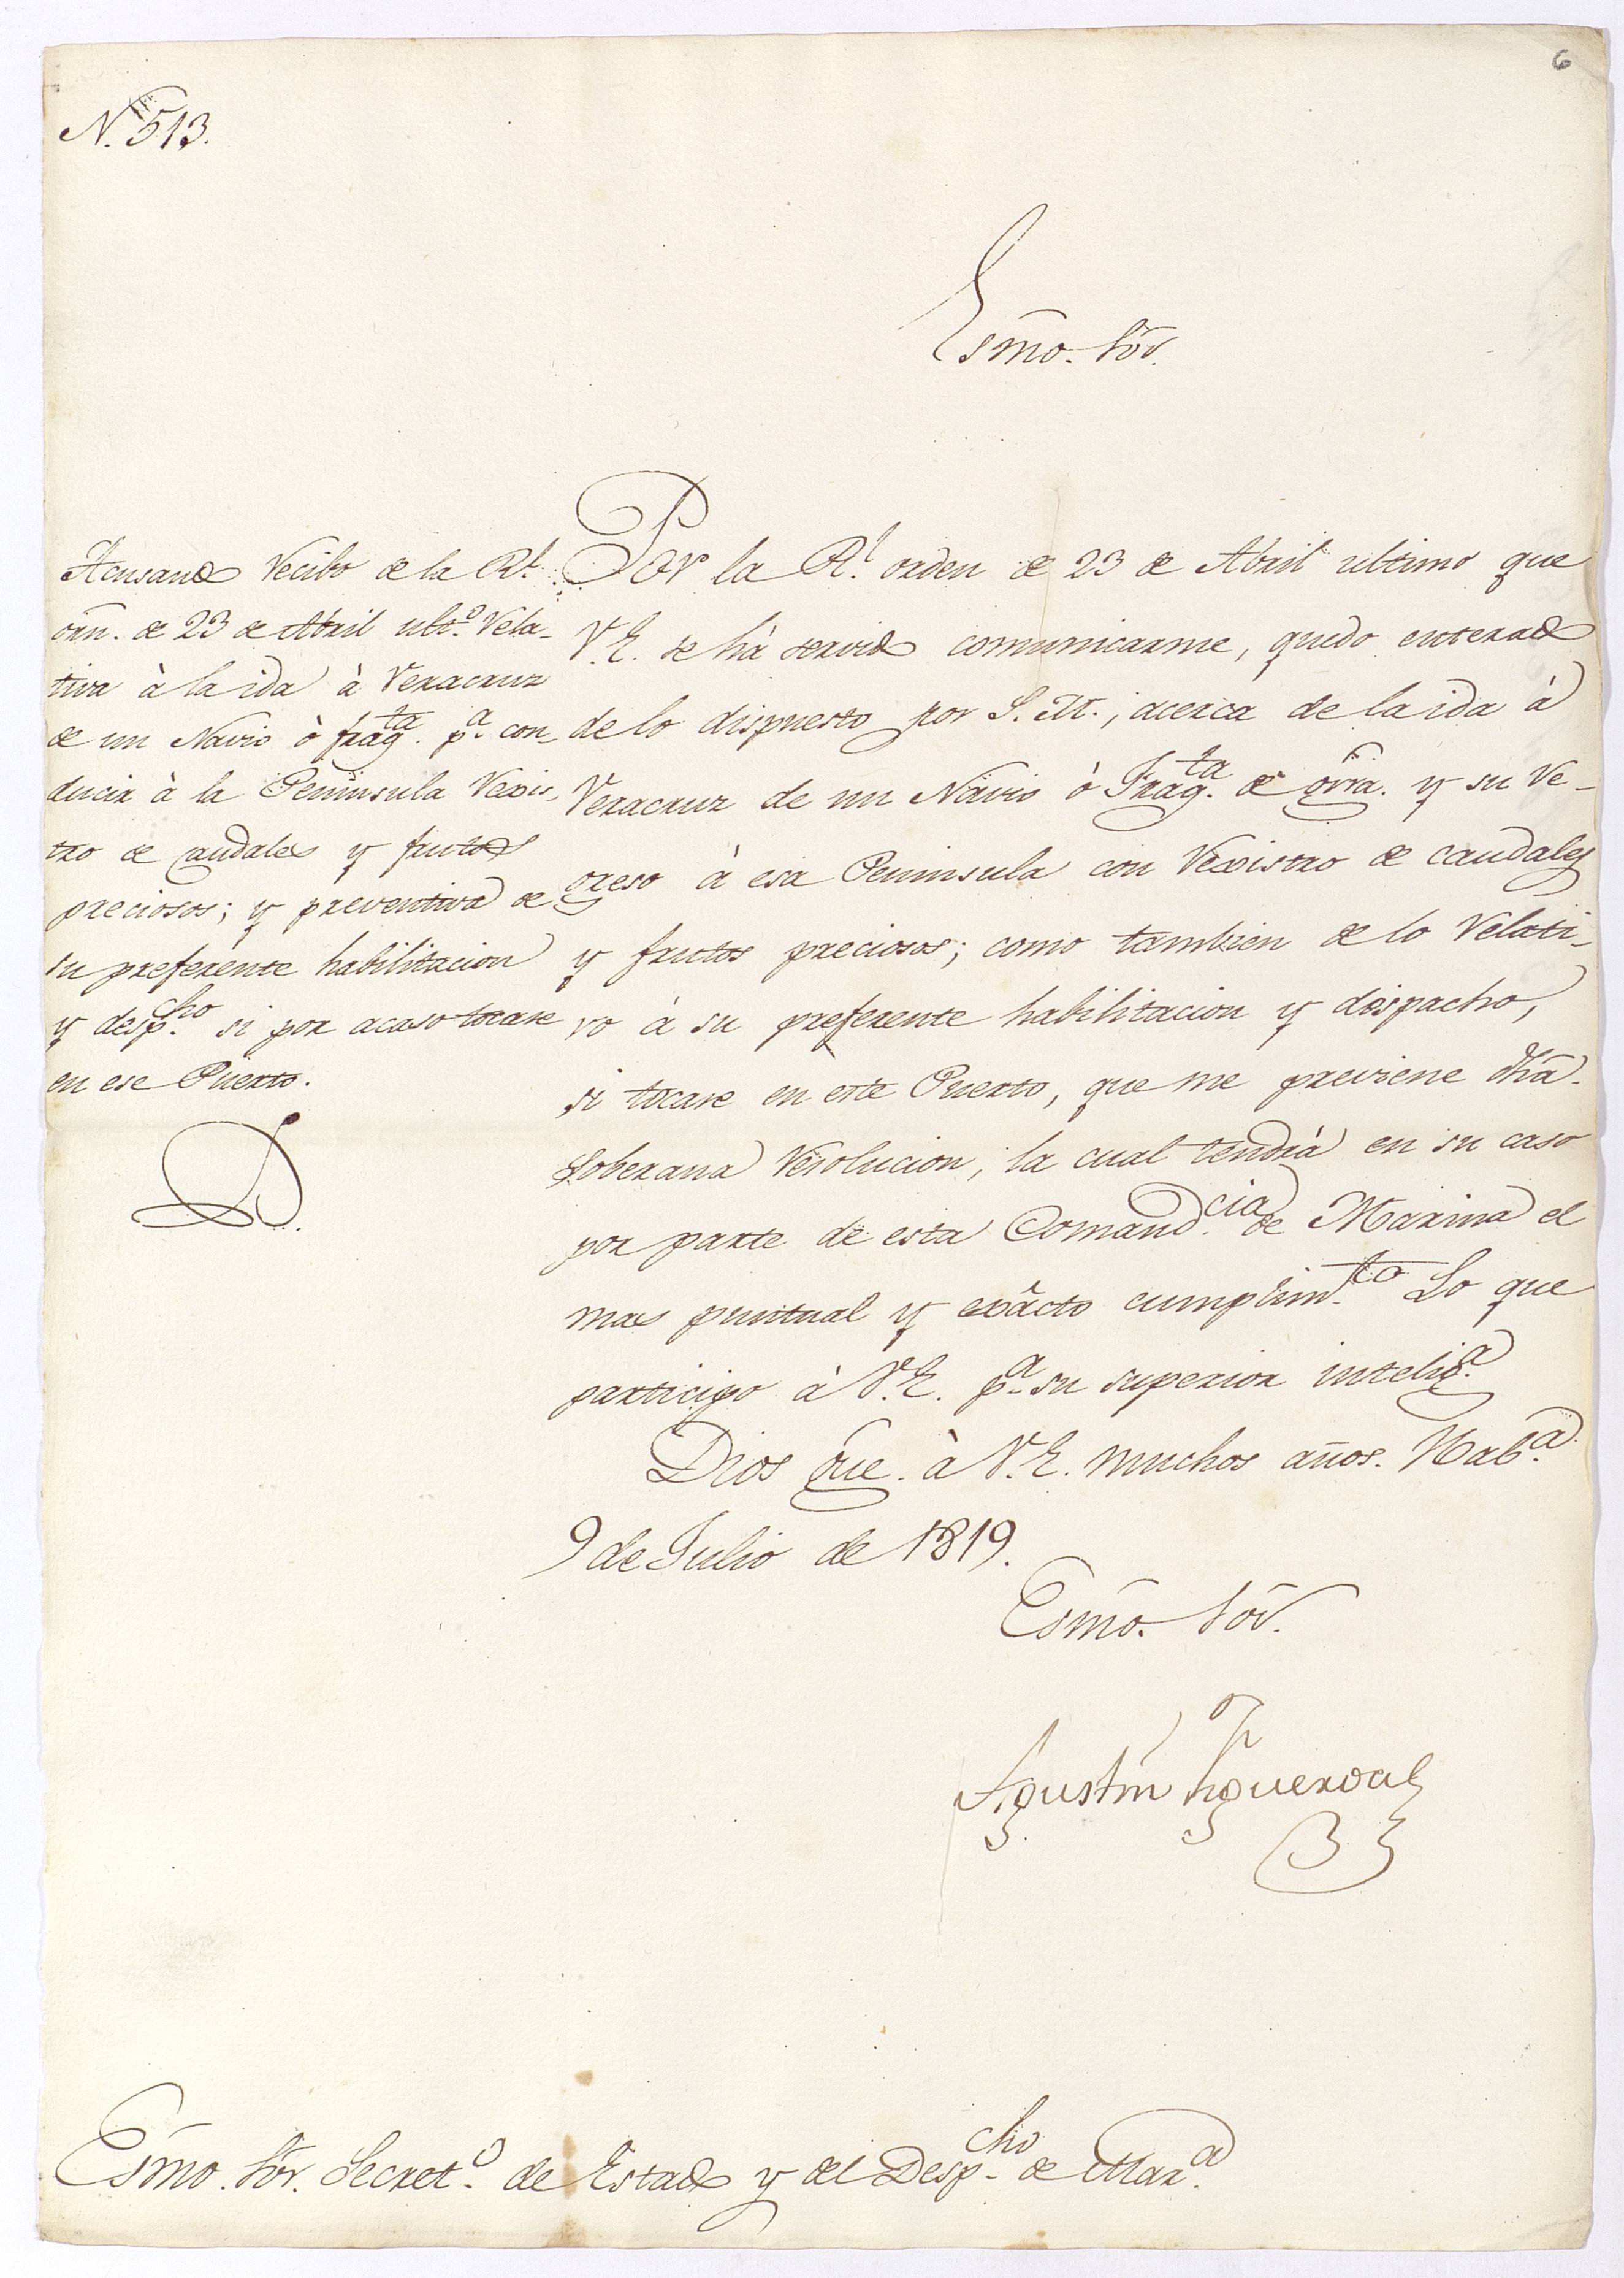 6
N.º 513.
Esmo. Sõr.
Acusando recibo de la Rl.
orñ. de 23 de Abril ult.º rela-
tiva à la ida à Veracruz
de un Navio ò frag.ta p.a con-
ducir à la Peninsula rexis-
tro de caudales y frutos
preciosos; y preventiva de
su preferente habilitacion
y desp.cho si por acaso tocase
en ese Puerto.
Por la Rl. orden de 23 de Abril ultimo que
V.E. se hà servido comunicarme, quedo enterado
de lo dispuesto por S. M., acerca de la ida à
Veracruz de un Navio ò Frag.ta de grra. y su re-
greso à esa Peninsula con rexistro de caudales
y frutos preciosos; como tambien de lo relati-
vo à su preferente habilitacion y dispacho,
si tocase en este Puerto, que me previene dha.
soberana resolucion, la cual tendrà en su caso
por parte de esta Comand.cia de Marina el
mas puntual y exâcto cumplim.to Lo que
participo à V.E. p.a su superior intelig.a
Dios gue. à V.E. muchos años. Hab.a
9 de Julio de 1819.
Esmo. Sõr.
Agustin Figueroa
Esmo. Sõr. Secret.º de Estado y del Desp.cho de Mar.a